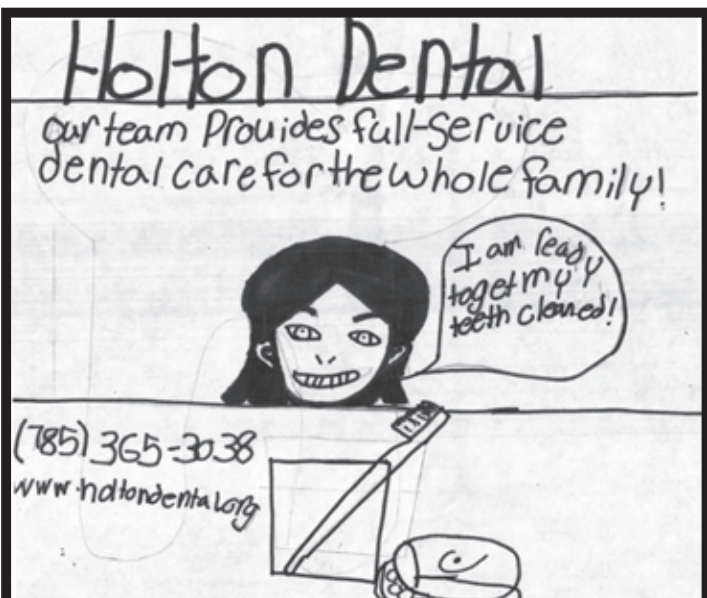 Holton Dental
our team Provides full-service
dental care for the whole family!
I am ready
to get my
teeth cleaned!
(785) 365-3038
www.holtondental.org